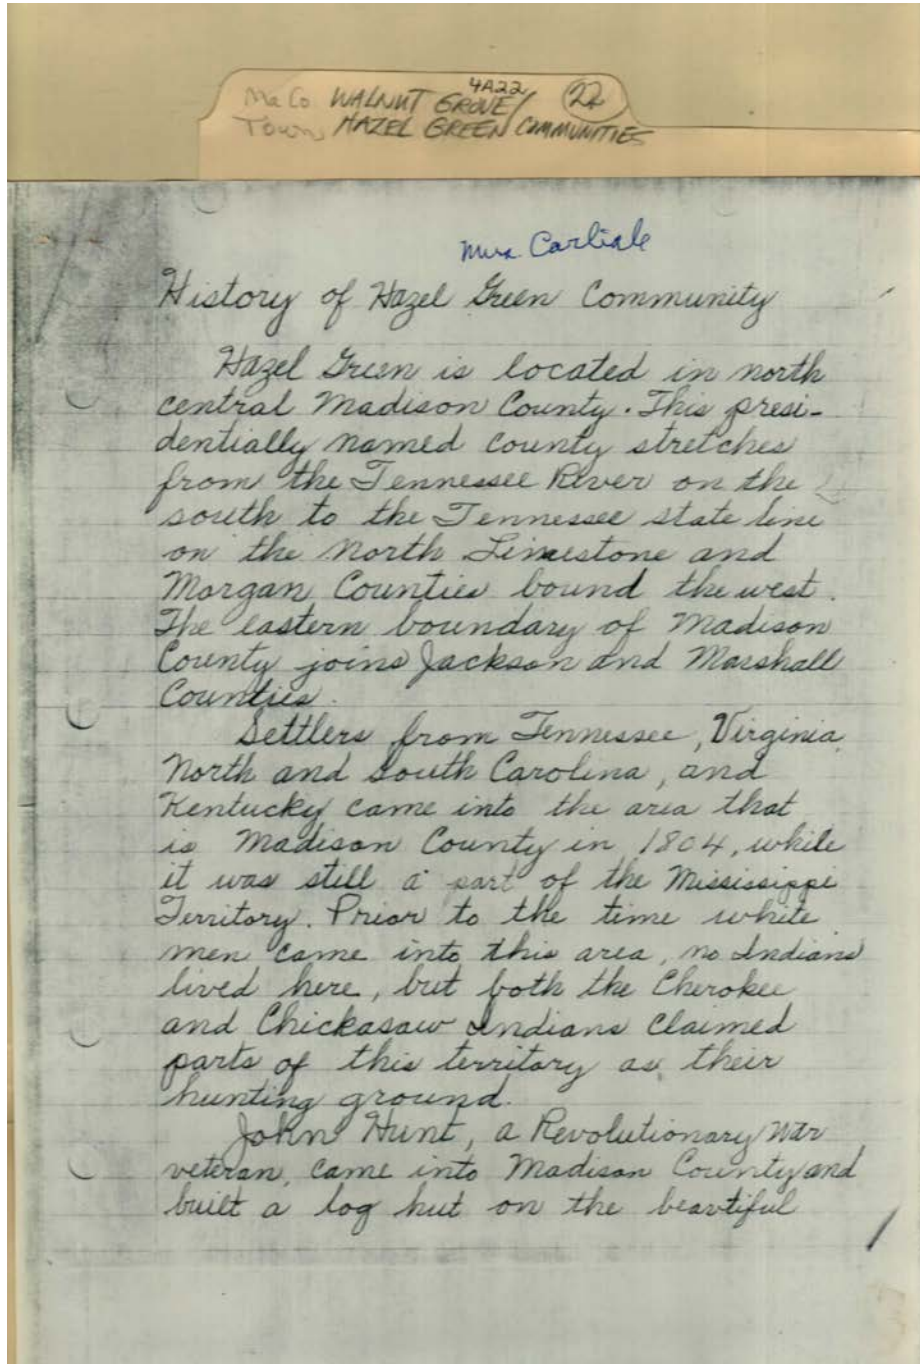 4A22
Ma Co WALNUT GROVE/ 22
Town HAZEL GREEN COMMUNITIES
Mrs Carlisle
History of Hazel Green Community
Hazel Green is located in north
central Madison County. This presi-
dentially named county stretches
from the Tennessee River on the
south to the Tennessee state line
on the North Limestone and
Morgan Counties bound the west.
The eastern boundary of Madison
County joins Jackson and Marshall
Counties.
Settlers from Tennessee, Virginia,
North and South Carolina, and
Kentucky came into the area that
is Madison County in 1804, while
it was still a part of the Mississippi
Territory. Prior to the time white
men came into this area, no Indians
lived here, but both the Cherokee
and Chickasaw Indians claimed
parts of this territory as their
hunting ground.
John Hunt, a Revolutionary War
veteran, came into Madison County and
built a log hut on the beautiful
1